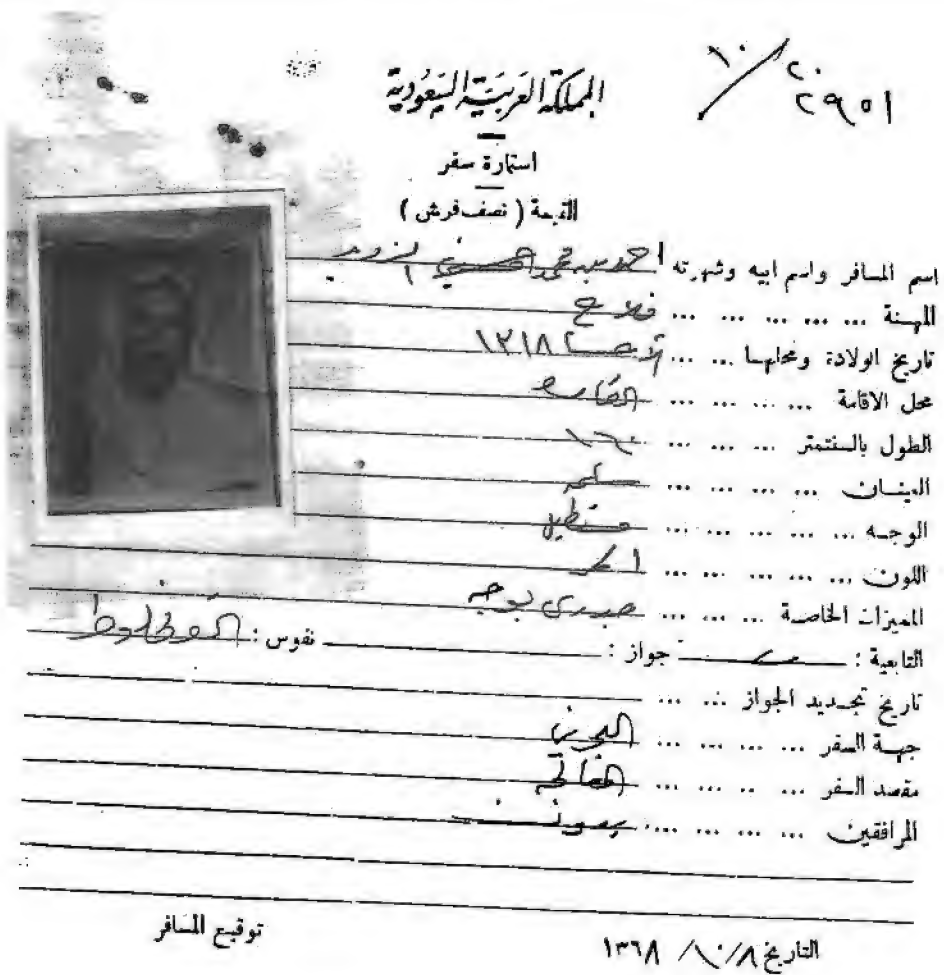 ١٠/٢٠
٢٩٥١
المملكة العربية السعودية
استمارة سفر
القيمة ( نصف قرش )
اسم المسافر واسم ابيه وشهرته احمد بن محمد
المهنة ... ... ... ... ... فلاح
تاريخ الولادة ومحلها ... ... ١٣١٨
محل الاقامة ... ... ... ...
الطول بالسنتمتر ... ... ... ١٦٠
العينان ... ... ... ... سالمه
الوجه ... ... ... ... ... مستطيل
اللون ... ... ... ... ... ...
المميزات الخاصة ... ... ... جدري بوجهه
التابعية : جواز : نفوس :
تاريخ تجديد الجواز ... ...
جهة السفر ... ... ... ... البحرين
مقصد السفر ... ... ... ... المعالجه
المرافقين ... ... ... .... بدون
توقيع المسافر
التاريخ ٨/١٠/١٣٦٨